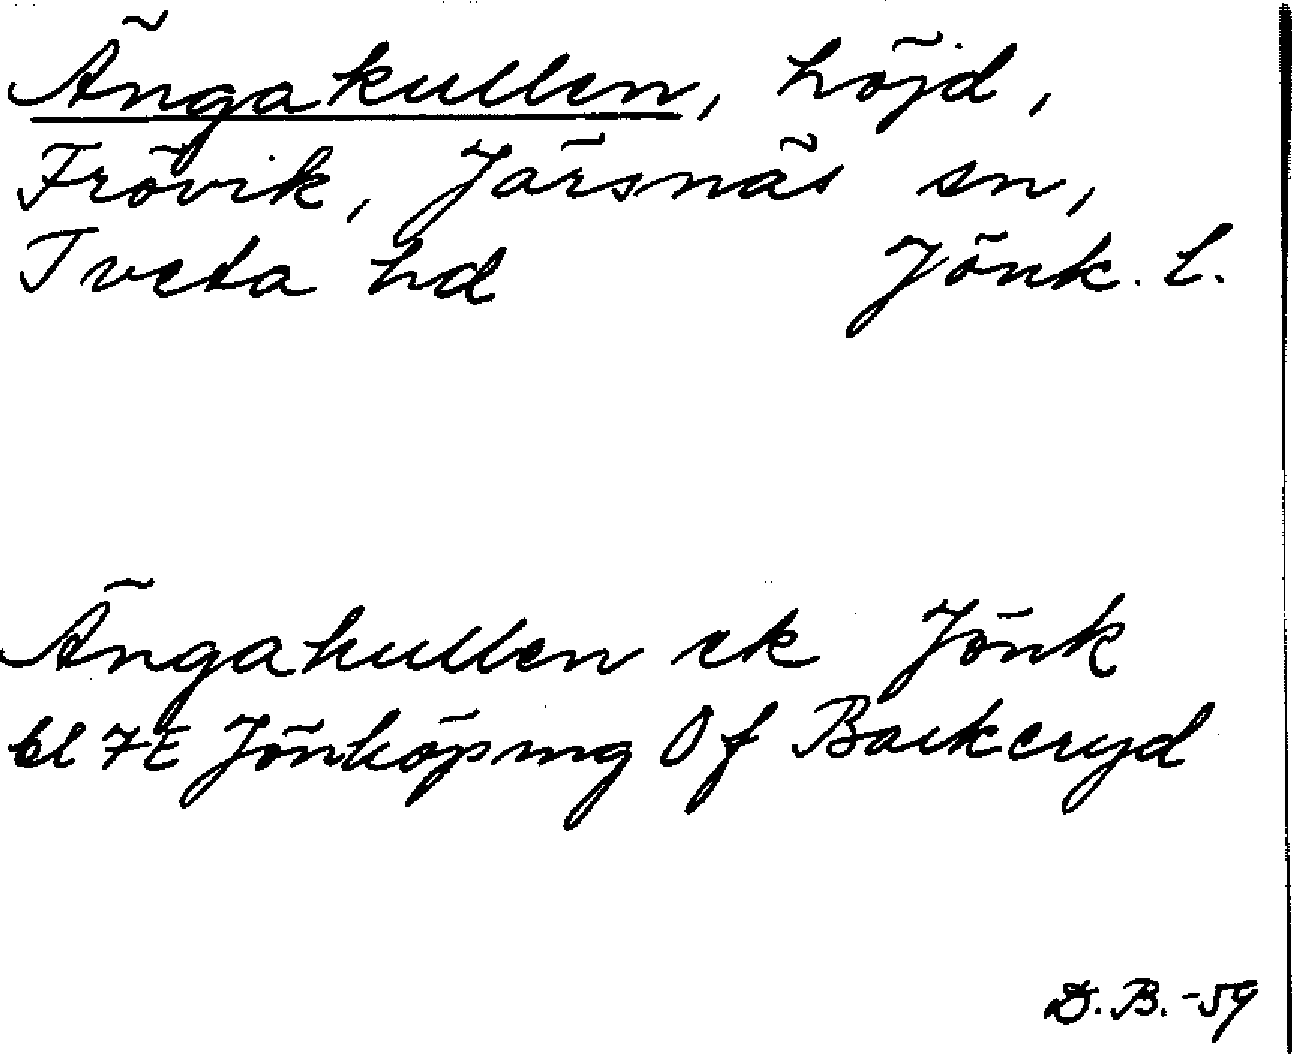 Ängakullen, höjd,
Frövik, Järsnäs sn,
Tveta hd Jönk. l.
Ängakullen ek Jönk
bl 7E Jönköping Of Barkeryd
D.B. -59